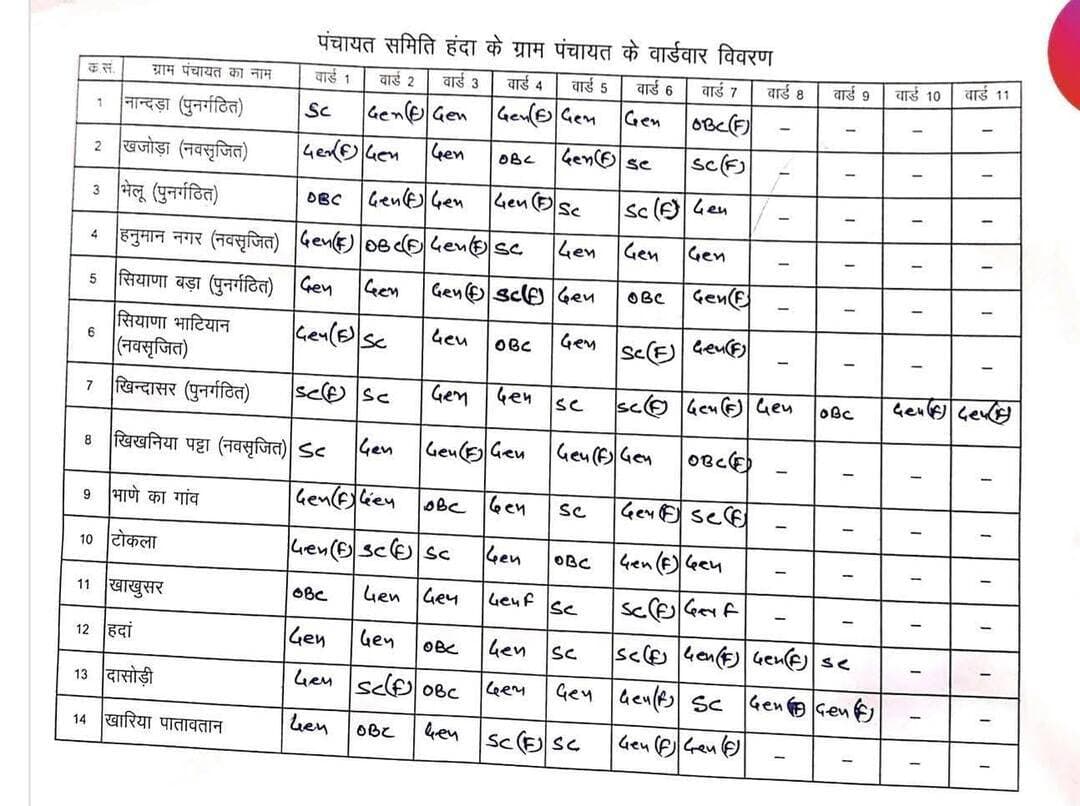 पंचायत समिति हंदा के ग्राम पंचायत के वार्डवार विवरण
क.सं. ग्राम पंचायत का नाम वार्ड 1 वार्ड 2 वार्ड 3 वार्ड 4 वार्ड 5 वार्ड 6 वार्ड 7 वार्ड 8 वार्ड 9 वार्ड 10 वार्ड 11
1 नान्दड़ा (पुनर्गठित) SC Gen(F) Gen Gen(F) Gen Gen OBC(F) – – – –
2 खजोड़ा (नवसृजित) Gen(F) Gen Gen OBC Gen(F) SC SC(F) – – – –
3 भेलू (पुनर्गठित) OBC Gen(F) Gen Gen(F) SC SC(F) Gen – – – –
4 हनुमान नगर (नवसृजित) Gen(F) OBC(F) Gen(F) SC Gen Gen Gen – – – –
5 सियाणा बड़ा (पुनर्गठित) Gen Gen Gen(F) SC(F) Gen OBC Gen(F) – – – –
6 सियाणा भाटियान (नवसृजित) Gen(F) SC Gen OBC Gen SC(F) Gen(F) – – – –
7 खिन्दासर (पुनर्गठित) SC(F) SC Gen Gen SC SC(F) Gen(F) Gen OBC Gen(F) Gen(F)
8 खिखनिया पट्टा (नवसृजित) SC Gen Gen(F) Gen Gen(F) Gen OBC(F) – – – –
9 भाणे का गांव Gen(F) Gen OBC Gen SC Gen(F) SC(F) – – – –
10 टोकला Gen(F) SC(F) SC Gen OBC Gen(F) Gen – – – –
11 खाखुसर OBC Gen Gen Gen F SC SC(F) Gen F – – – –
12 हदां Gen Gen OBC Gen SC SC(F) Gen(F) Gen(F) SC – –
13 दासोड़ी Gen SC(F) OBC Gen Gen Gen(F) SC Gen(F) Gen(F) – –
14 खारिया पातावतान Gen OBC Gen SC(F) SC Gen(F) Gen(F) – – – –